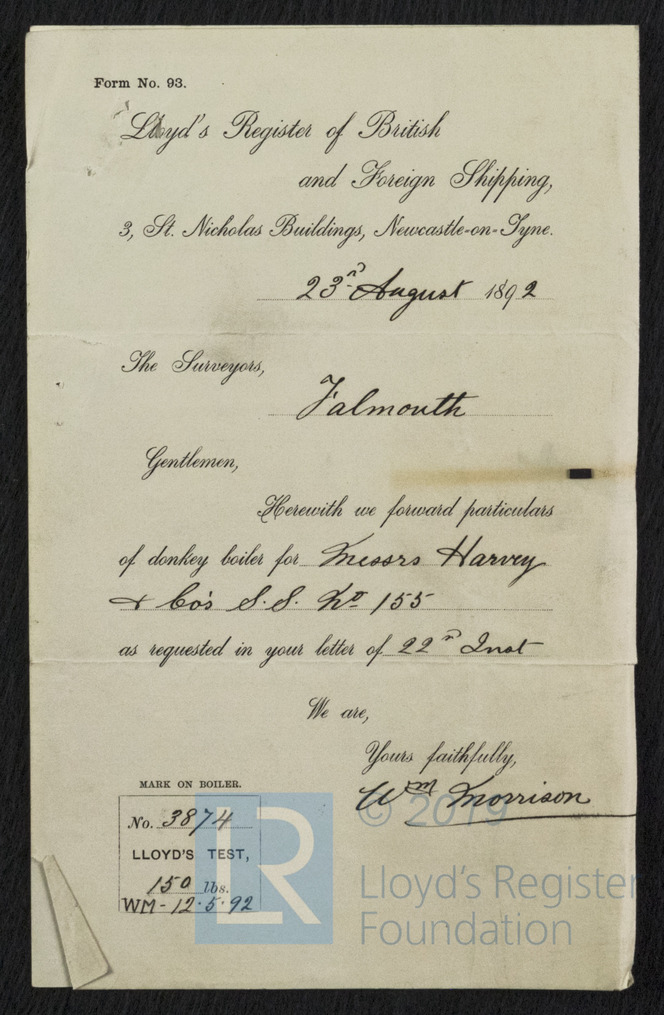 Form No. 93.
Lloyd's Register of British
and Foreign Shipping,
3, St. Nicholas Buildings, Newcastle-on-Tyne.
23rd August 1892
The Surveyors,
Falmouth
Gentlemen,
Herewith we forward particulars
of donkey boiler for Messrs Harvey
& Co's S.S. No 155
as requested in your letter of 22nd Inst
We are,
Yours faithfully,
Wm Morrison
MARK ON BOILER.
No. 3874
LLOYD'S TEST,
150 lbs.
WM - 12.5.92
LR
© 2019
Lloyd's Register
Foundation